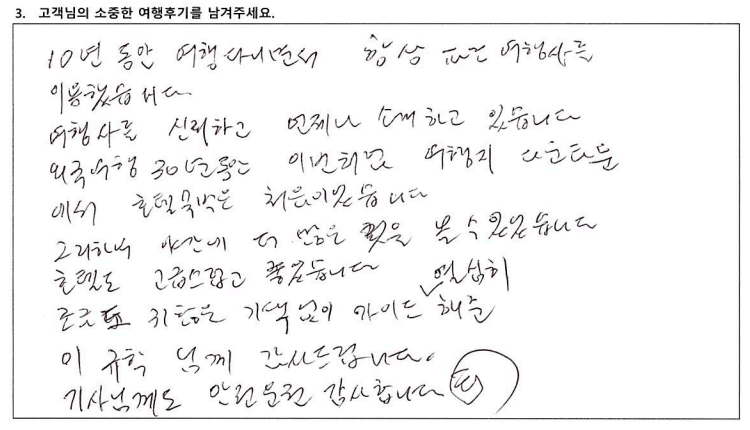 3. 고객님의 소중한 여행후기를 남겨주세요.
10년 동안 여행다니면서 항상 여행사를
이용했습니다
여행사를 신뢰하고 언제나 소개하고 있습니다
외국여행 30년동안 이번처럼 여행지 다운타운
에서 호텔숙박은 처음이었습니다
그리하여 야간에 더 많은 것을 볼 수 있었습니다
호텔도 고급스럽고 좋았습니다 열심히
가이드 해준
이 규학 님께 감사드립니다.
기사님께도 안전운전 감사합니다